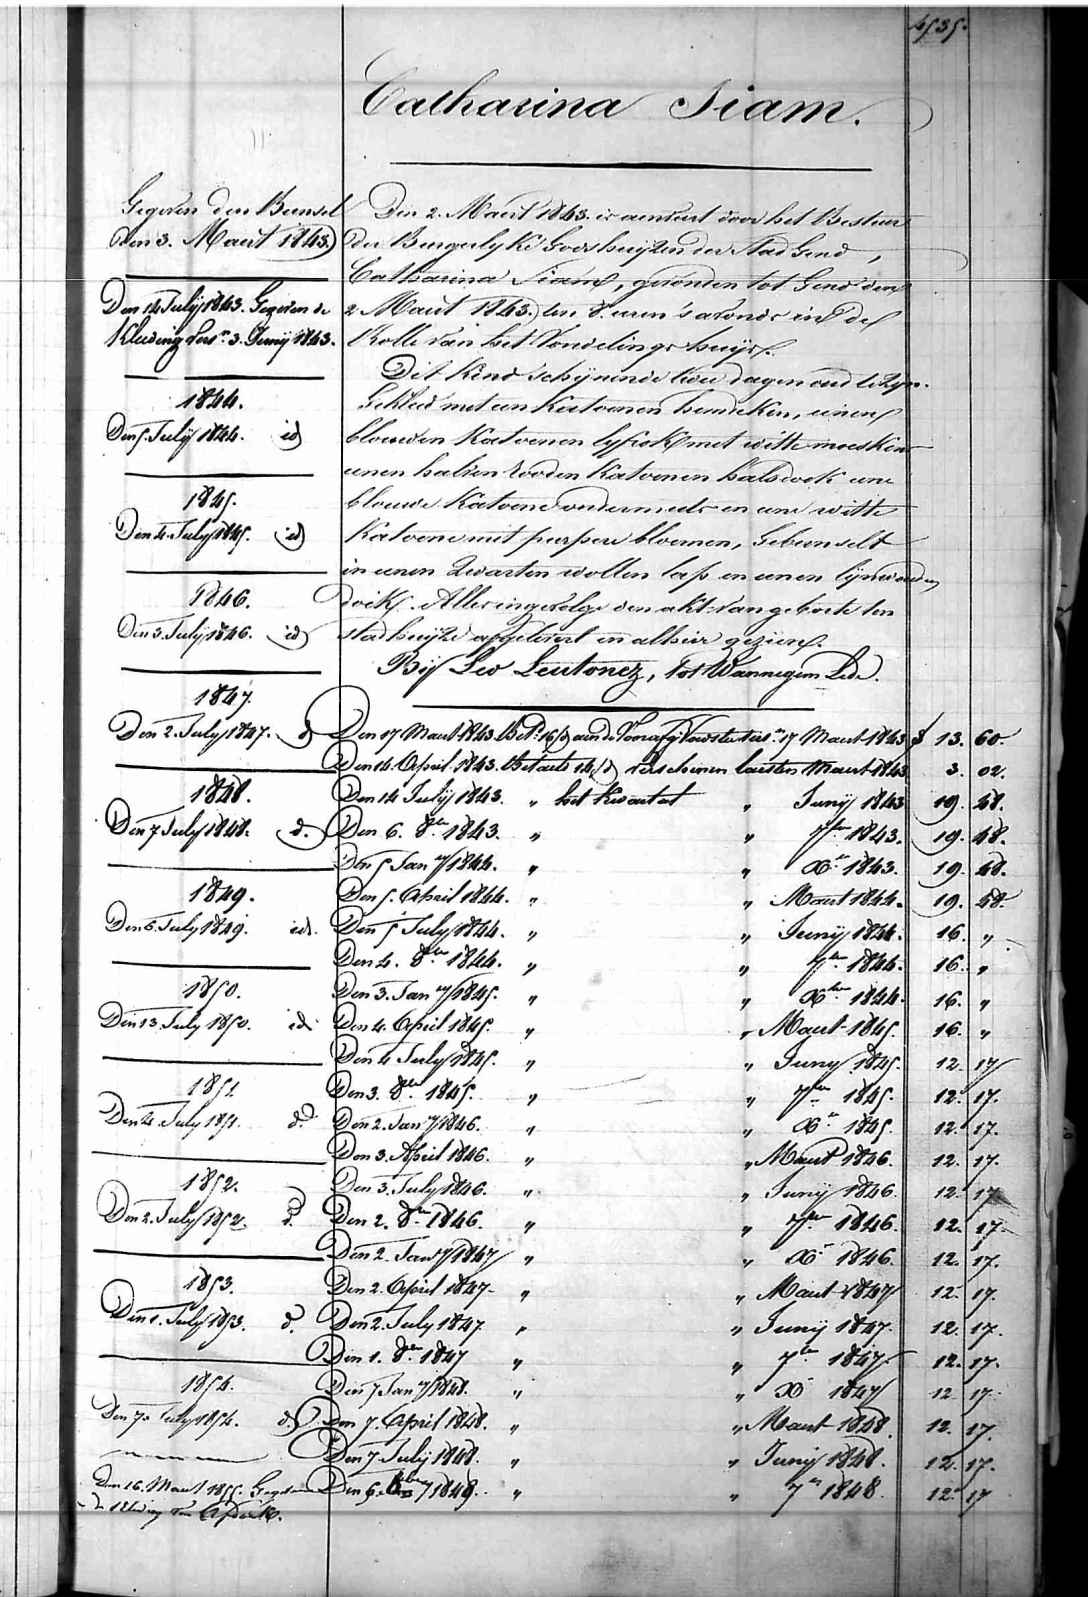 4535.
Catharina Siam.
Gegeven den Bunsel
den 3. Maert 1843.
Den 14 July 1843. Gegeven de
Kleeding vers.n 3. Junij 1843.
1844.
Den 5 July 1844. id
1845.
Den 4 July 1845. id
1846.
Den 3. July 1846. id
1847.
Den 2. July 1847. d
1848.
Den 7 July 1848. d.
1849.
Den 6. July 1849. id.
1850.
Den 13. July 1850. id
1851
Den 4. July 1851. d.
1852.
Den 2. July 1852. d.
1853.
Den 1. July 1853. d.
1854.
Den 7 July 1854. d.
Den 16. Maert 1855. Gegeven
Kleeding van
Den 2. Maert 1843. is aenveert door het Bestuer
der Burgerlyke Godshuyzen der Stad Gend,
Catharina Siam, gevonden tot Gend den
2 Maert 1843. ten 8. uren 's avonds in de
Rolle van het Vondelingshuys.
Dit Kind schynende twee dagen oud te zyn.
Gekleed met een Kattoenen hemdeken, eenen
blauwen Katoenen lyfrok met witte
eenen halven rooden Katoenen halsdoek eene
blauwe Katoene ondermuts en eene witte
Katoene met purpere bloemen, Gebunselt
in eenen Zwarten wollen lap en eenen lynwaden
doek. Alles ingevolge den akt van geboorte ten
stadhuyze afgelevert en alhier gezien.
By Leo Leutonez, tot Wannegem Lede.
Den 17 Maert 1843. Bet. 16/ aen de Voorz. Voedster vers.n 17 Maert 1843 f 13. 60.
Den 14. April 1843. Betaelt 14/d verschenen laesten Maert 1843 3. 02.
Den 14 July 1843. " het Kwartael " Junij 1843 19. 48.
Den 6. 8ber 1843. " " 7ber 1843. 19. 48.
Den 5 Jany 1844. " " Xr 1843. 19. 48.
Den 5. April 1844. " " Maert 1844. 19. 48.
Den 5 July 1844. " " Junij 1844. 16. "
Den 4. 8ber 1844. " " 7ber 1844. 16. "
Den 3. Jany 1845. " " Xber 1844. 16. "
Den 4. April 1845. " " Maert 1845. 16. "
Den 4 July 1845. " " Juny 1845. 12. 17
Den 3. 8ber 1845. " " 7ber 1845. 12. 17.
Den 2. Jany 1846. " " Xr 1845. 12. 17.
Den 3. April 1846. " " Maert 1846. 12. 17.
Den 3. July 1846. " " Junij 1846. 12. 17
Den 2. 8ber 1846. " " 7ber 1846. 12. 17.
Den 2. Jany 1847 " " Xr 1846. 12. 17.
Den 2. April 1847. " " Maert 1847 12. 17.
Den 2. July 1847. " " Junij 1847. 12. 17.
Den 1. 8ber 1847 " " 7ber 1847. 12. 17.
Den 7 Jany 1848. " " Xr 1847 12 17.
Den 7. April 1848. " " Maert 1848. 12. 17.
Den 7 July 1848. " " Junij 1848. 12. 17.
Den 6. 1848. " " 7r 1848. 12. 17